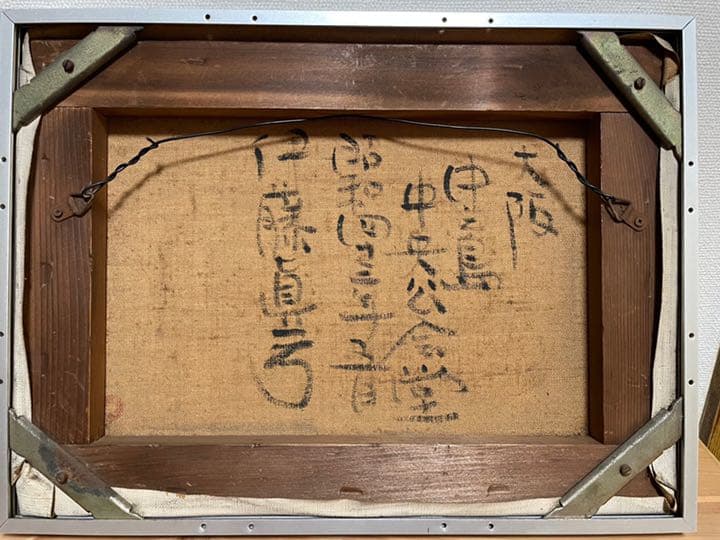 大阪
中之島
中央公会堂
昭和四十三年五月
伊藤